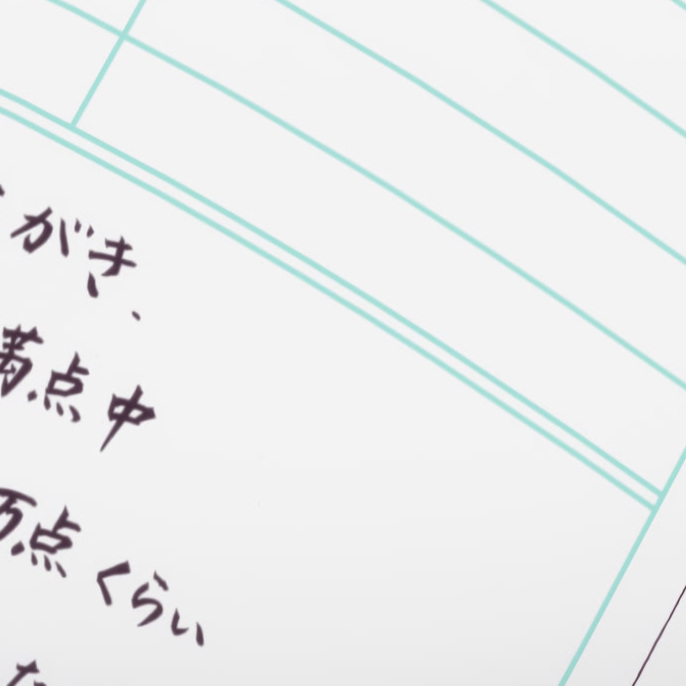 がき、
満点中
万点くらい
な